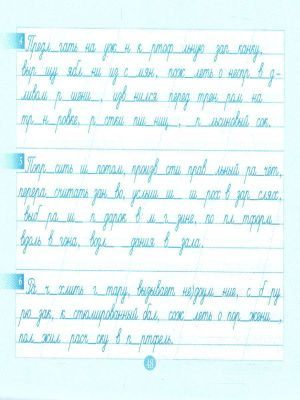 4
Предл_гать на уж_н к_ртоф_льную зап_канку,
выр_щу ябл_ни из с_мян, пож_леть о неспр_в_д-
ливом р_шени_, изв_нился перед трен_ром на
тр_н_ровке, р_стки пш_ниц_, _п_льсиновый сок.
5
Попр_сить ш_потом, произв_сти прав_льный ра_чет,
пере_считать зан_во, услыш_ш_рох в зар_слях,
выб_ра_ш_п_дарок в м_г_зине, по пл_тформ_
вдоль в_гона, возл_ _дания в_кзала.
6
Ра_ч_хлить г_тару, вызывает не_доум_ние, с_б_ру
рю_зак, к_стюмированный бал, сож_леть о пор_жени_,
пол_жил расч_ску в п_ртфель.
48